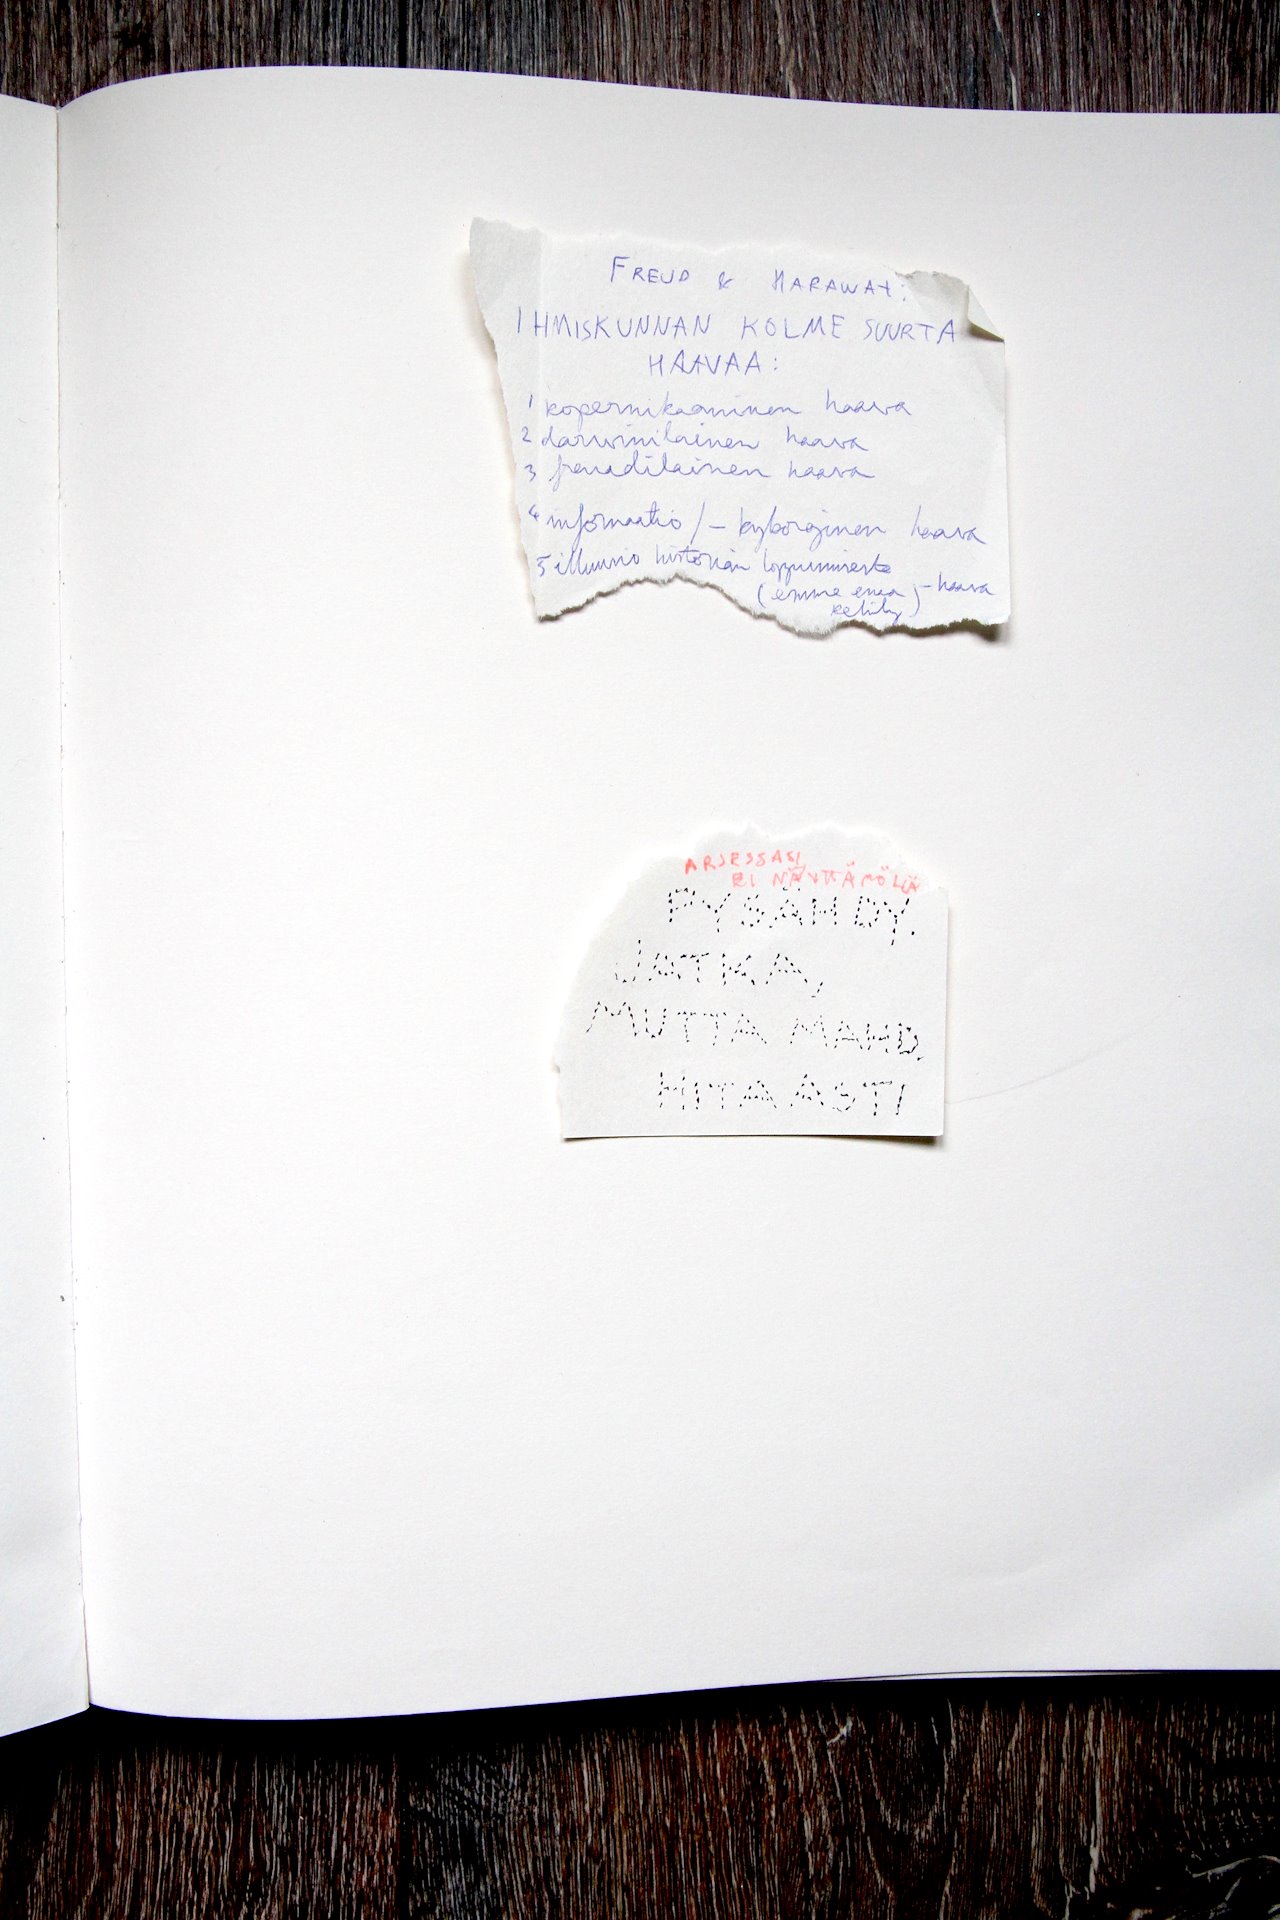 FREUD & HARAWAY:
IHMISKUNNAN KOLME SUURTA
HAAVAA:
1 kopernikaaninen haava
2 darwinilainen haava
3 freudilainen haava
4 informaatio / - kyborginen haava
5 illuusio historian loppumisesta
(emme enää - haava
kehity)
ARJESSASI,
EI NÄYTTÄMÖLLÄ
PYSÄHDY.
JATKA,
MUTTA MAHD.
HITAASTI